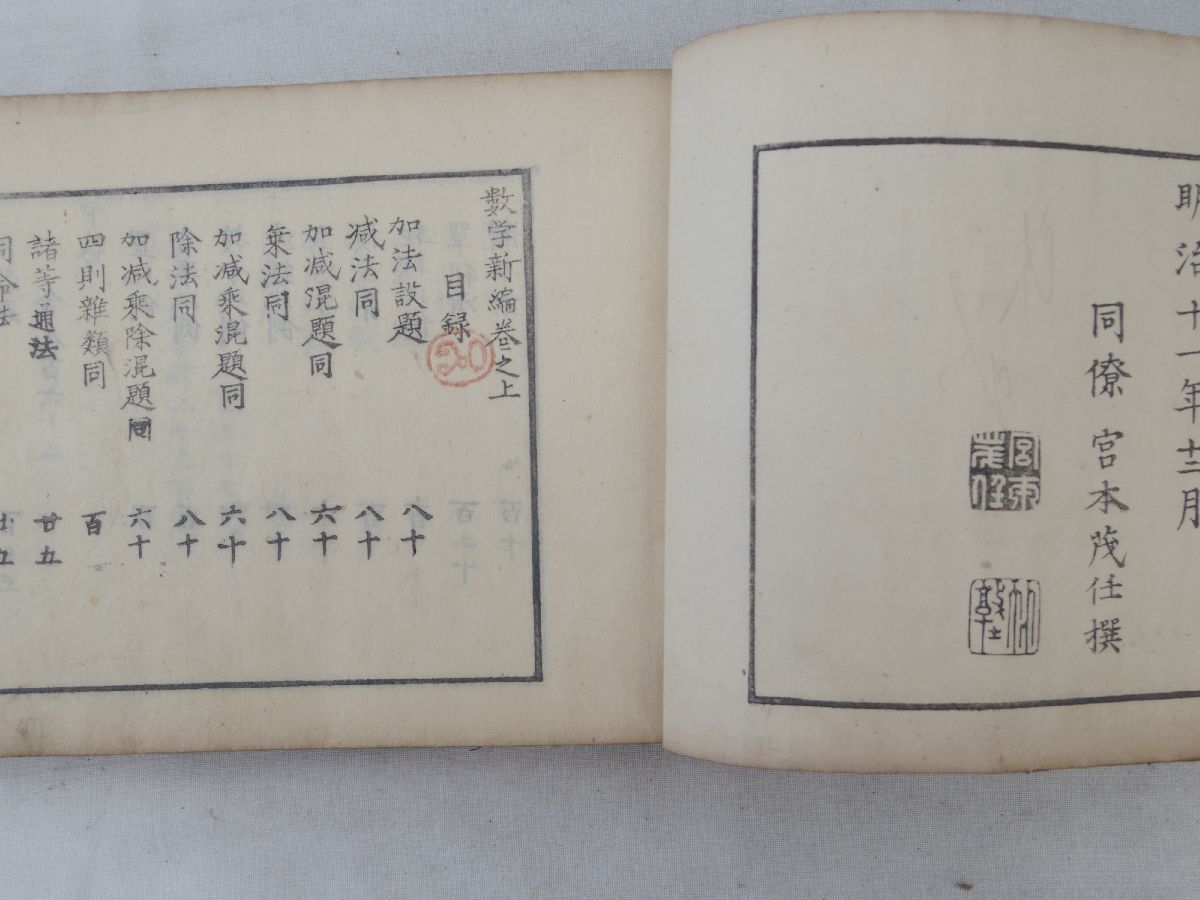 明治十一年十二月
同僚 宮本茂任撰
數学新編巻之上
目録
加法設題 八十
減法同 八十
加減混題同 六十
乗法同 八十
加減乗混題同 六十
除法同 八十
加減乗除混題同 六十
四則雜類同 百
諸等通法 廿五
同命法